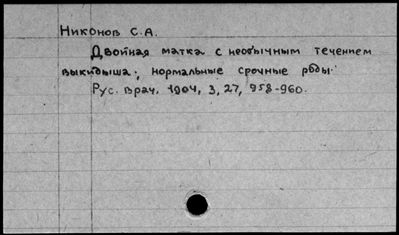 Никонов С.А.
Двойная матка с необычным течением
выкидыша; нормальные срочные роды.
Рус. врач. 1904, 3, 27, 958-960.